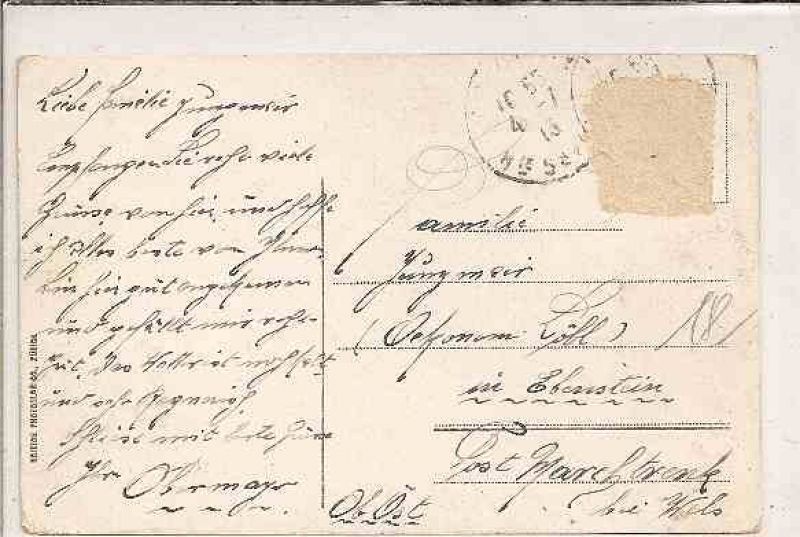 Liebe Familie Jungmeir
Empfangen Sie recht viele
Grüsse von hier und hoffe
ich alles beste von Ihnen.
Bin hier gut angekommen
und gefällt mir recht
gut. Das Wetter ist noch kalt
und sehr Regnerisch
Schliese mit beste Grüsse
Ihr Obermayr
EDITION PHOTOGLOB CO., ZÜRICH
Familie
Jungmeir
(Oekonom Löbl)
18
in Ebenstein
Post Marchtrenk
bei Wels
Ob Öst